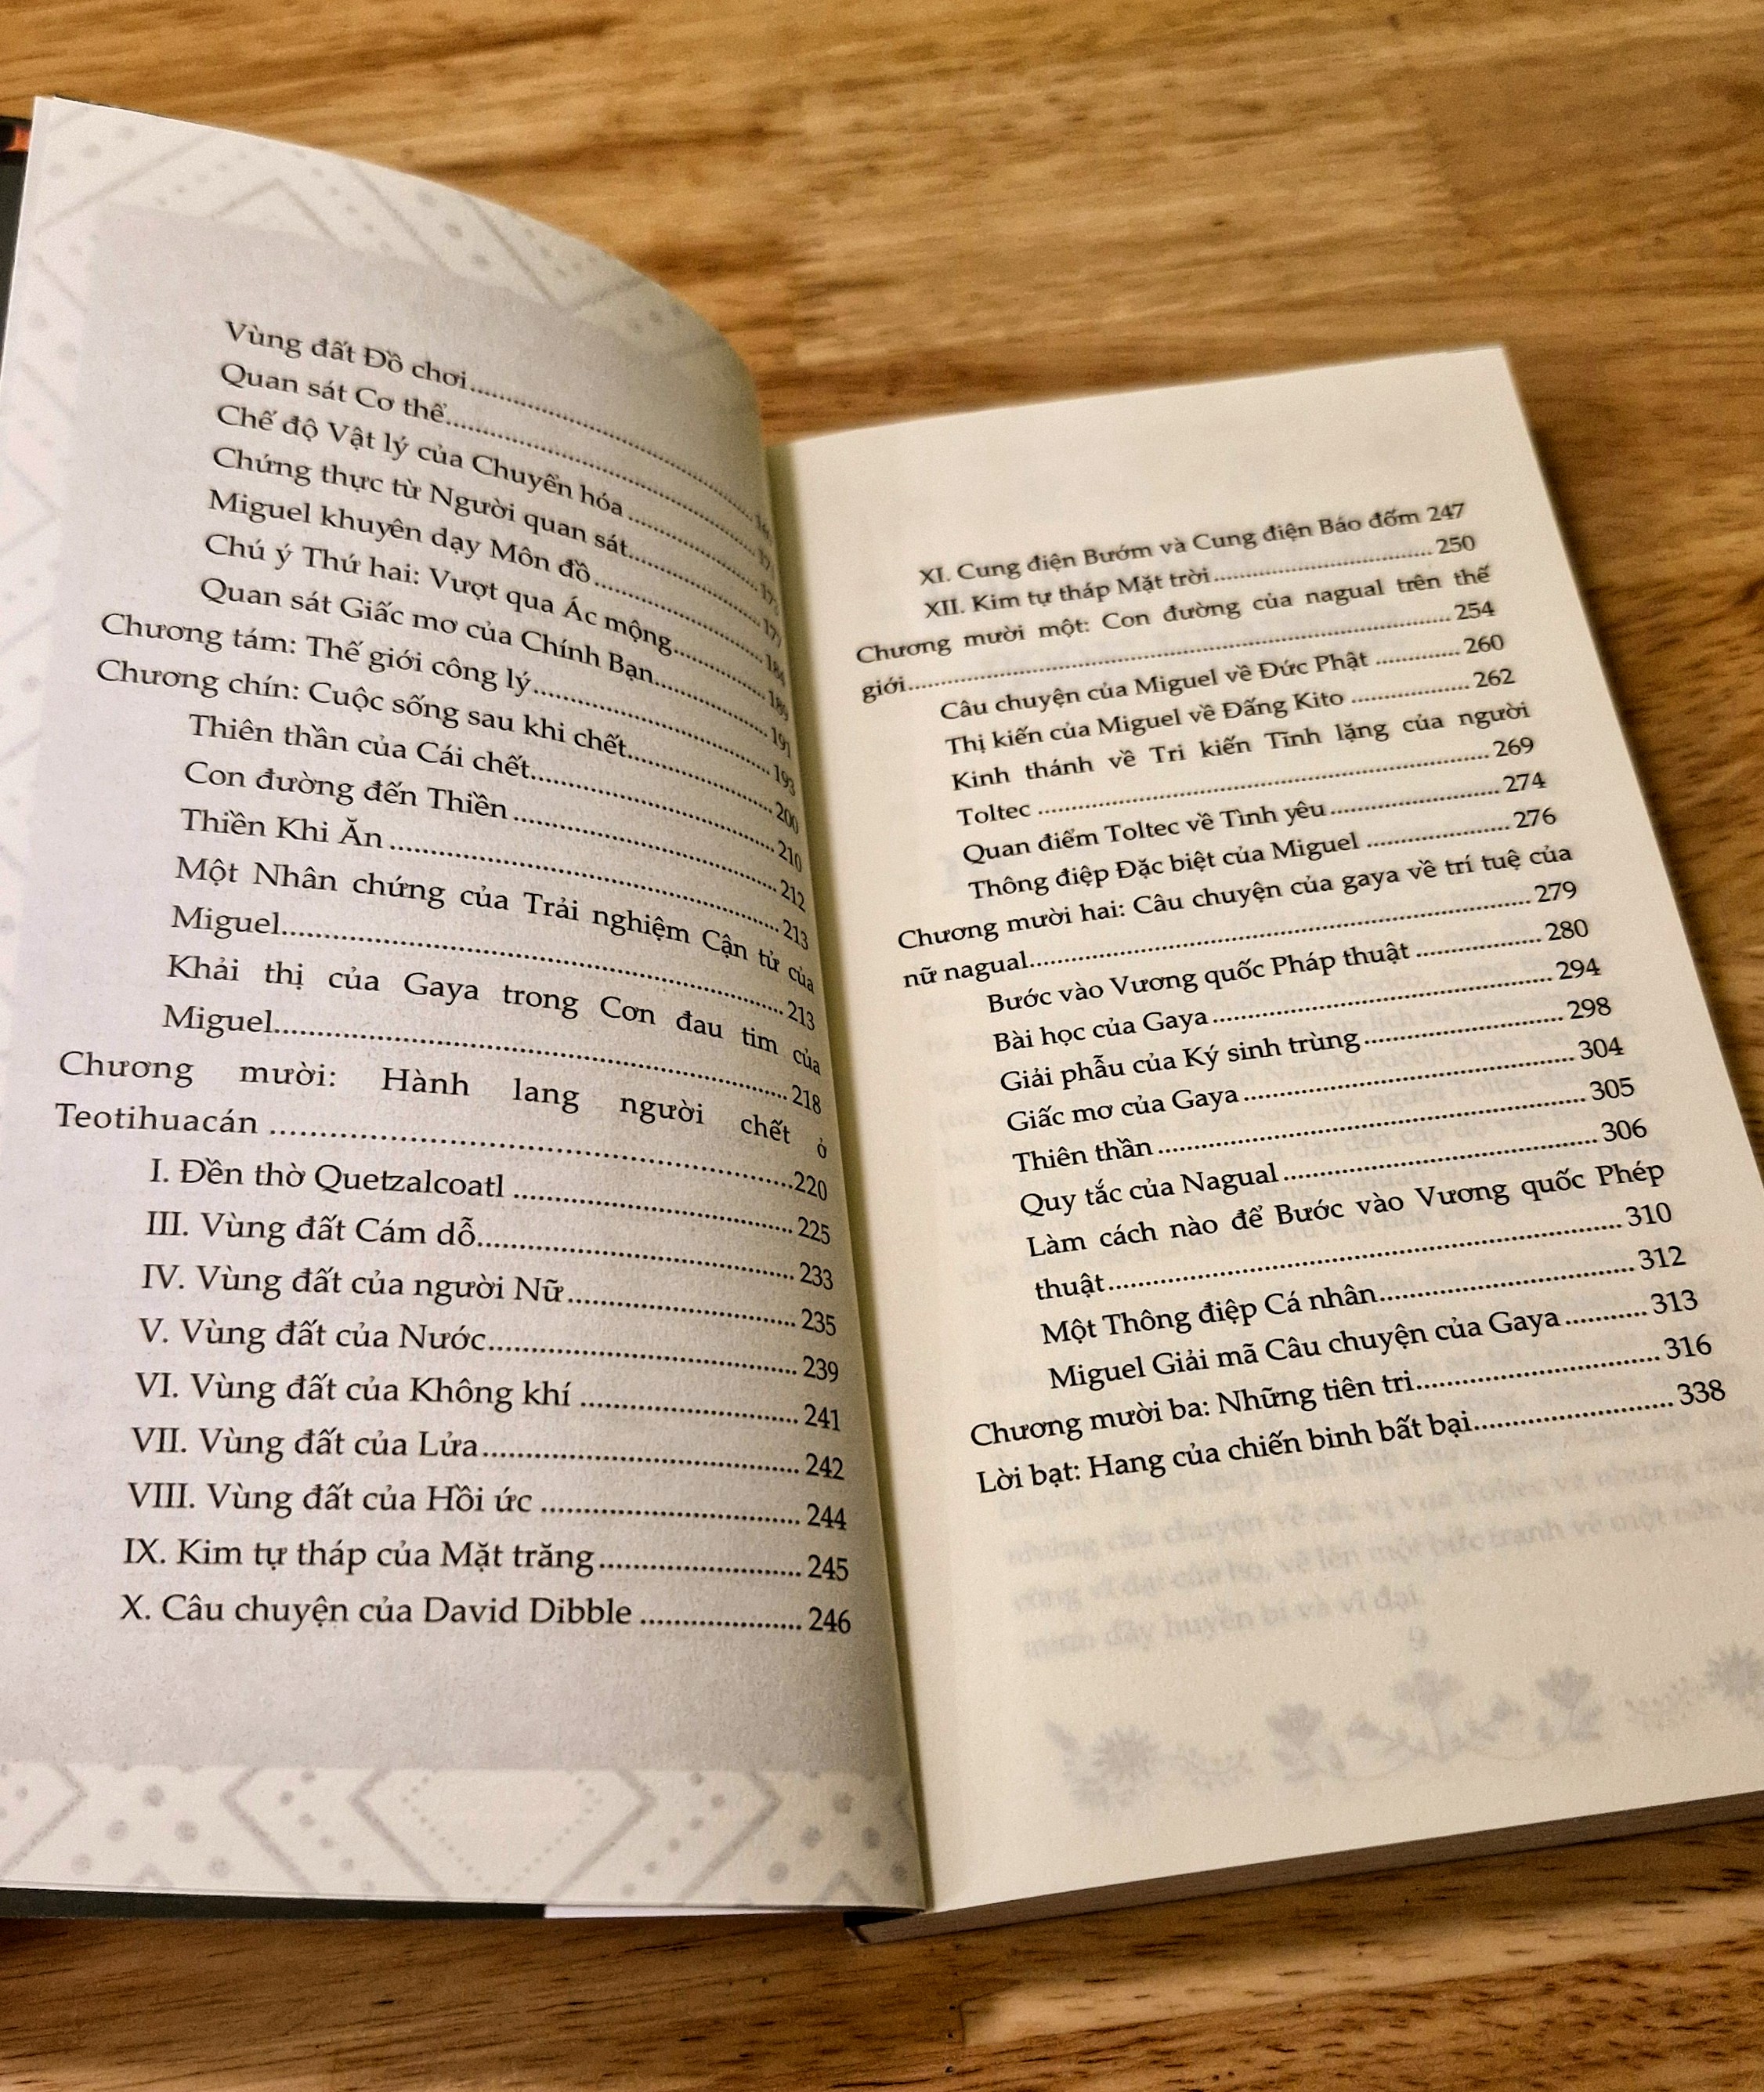 Vùng đất Đồ chơi
Quan sát Cơ thể
Chế độ Vật lý của Chuyển hóa
Chứng thực từ Người quan sát
Miguel khuyên dạy Môn đồ
Chú ý Thứ hai: Vượt qua Ác mộng 189
Quan sát Giấc mơ của Chính Bạn 191
Chương tám: Thế giới công lý 193
Chương chín: Cuộc sống sau khi chết 200
Thiên thần của Cái chết 210
Con đường đến Thiền 212
Thiền Khi Ăn 213
Một Nhân chứng của Trải nghiệm Cận tử của
Miguel 213
Khải thị của Gaya trong Cơn đau tim của
Miguel 218
Chương mười: Hành lang người chết ở
Teotihuacán 220
I. Đền thờ Quetzalcoatl 225
III. Vùng đất Cám dỗ 233
IV. Vùng đất của người Nữ 235
V. Vùng đất của Nước 239
VI. Vùng đất của Không khí 241
VII. Vùng đất của Lửa 242
VIII. Vùng đất của Hồi ức 244
IX. Kim tự tháp của Mặt trăng 245
X. Câu chuyện của David Dibble 246
XI. Cung điện Bướm và Cung điện Báo đốm 247
XII. Kim tự tháp Mặt trời 250
Chương mười một: Con đường của nagual trên thế
giới 254
Câu chuyện của Miguel về Đức Phật 260
Thị kiến của Miguel về Đấng Kito 262
Kinh thánh về Tri kiến Tĩnh lặng của người
Toltec 269
Quan điểm Toltec về Tình yêu 274
Thông điệp Đặc biệt của Miguel 276
Chương mười hai: Câu chuyện của gaya về trí tuệ của
nữ nagual 279
Bước vào Vương quốc Pháp thuật 280
Bài học của Gaya 294
Giải phẫu của Ký sinh trùng 298
Giấc mơ của Gaya 304
Thiên thần 305
Quy tắc của Nagual 306
Làm cách nào để Bước vào Vương quốc Phép
thuật 310
Một Thông điệp Cá nhân 312
Miguel Giải mã Câu chuyện của Gaya 313
Chương mười ba: Những tiên tri 316
Lời bạt: Hang của chiến binh bất bại 338